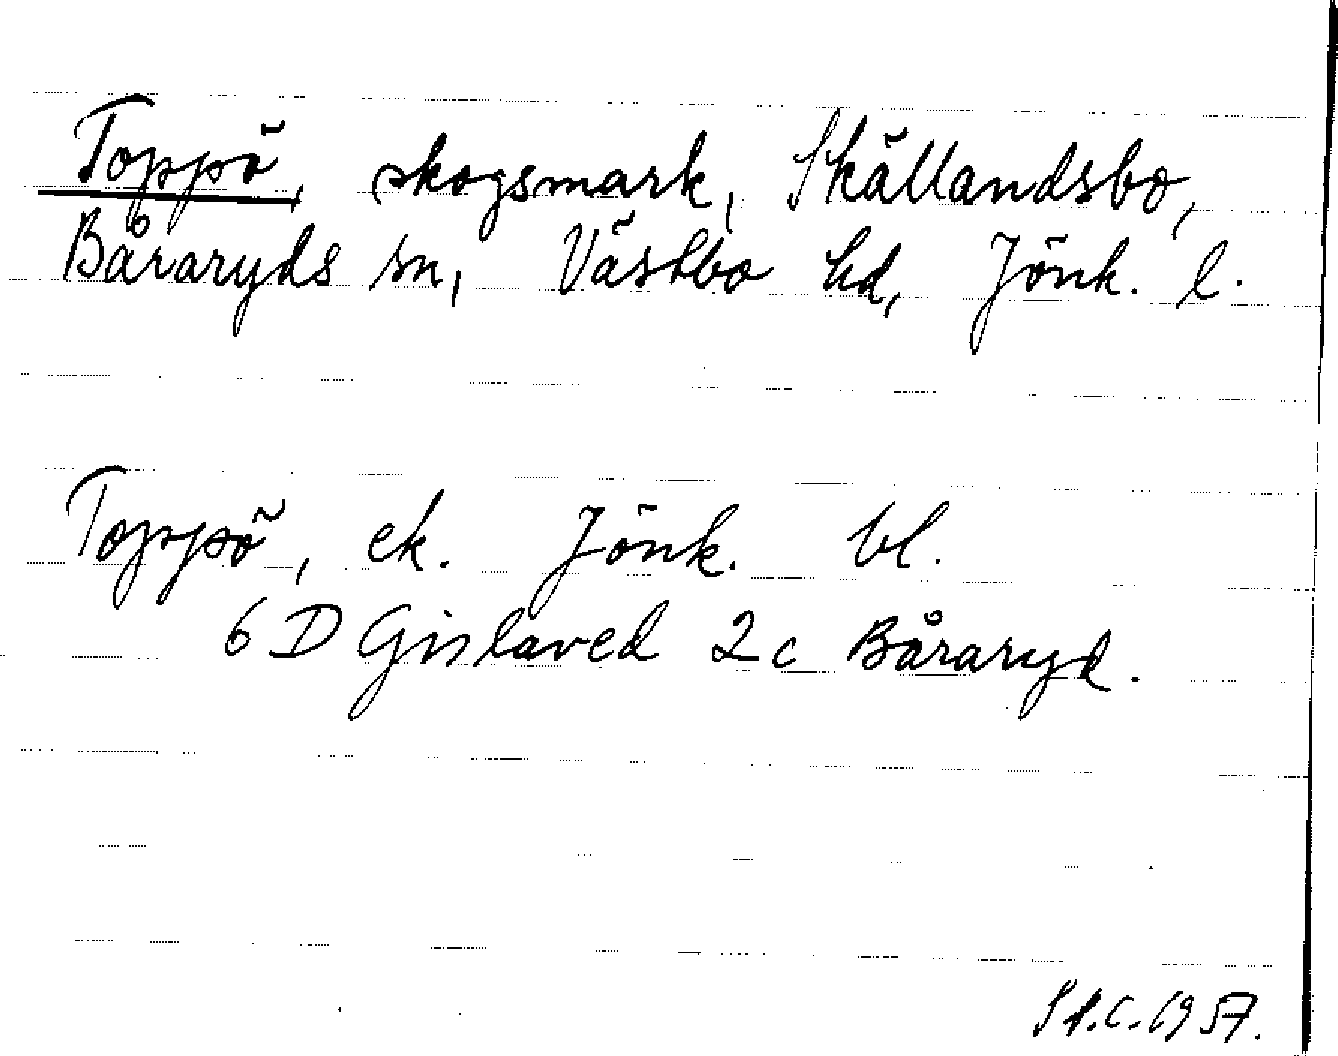 Toppö, skogsmark, Skällandsbo,
Båraryds sn, Västbo hd, Jönk. l.
Toppö, ek. Jönk. bl.
6 D Gislaved 2c Båraryd.
St.C. 1957.